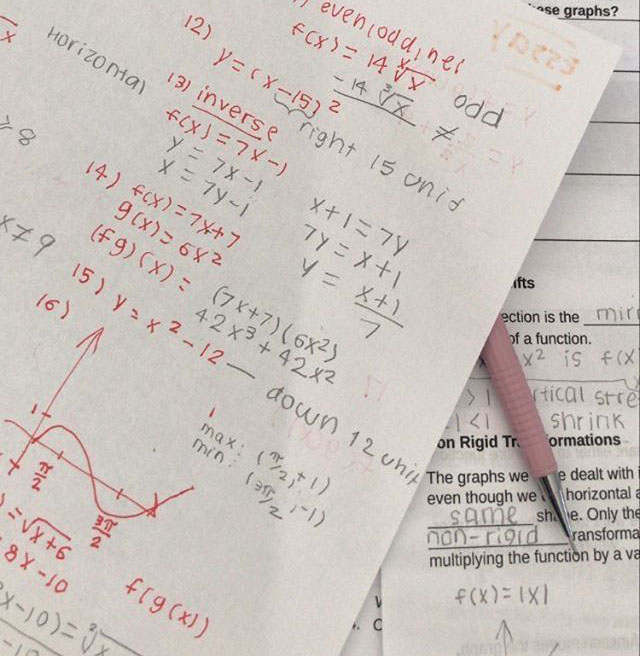 even, odd, nei
f(x) = 14 ∛x
-14 ∛x ≠ odd
12)
y = (x-15)²
right 15 unit
Horizontal
13) inverse
f(x) = 7x-1
y = 7x-1
x = 7y-1
x+1 = 7y
7y = x+1
y = x+1
7
≥ 8
x ≠ 9
14) f(x) = 7x+7
g(x) = 6x²
(fg)(x) =
(7x+7)(6x²)
42x³ + 42x²
15) y = x² - 12 — down 12 unit
16)
1
π/2
3π/2
max: (π/2, +1)
min: (3π/2, -1)
) = √x+6
8x-10
f(g(x))
x-10) = ∛
ESSAY
ese graphs?
ifts
ection is the mirr
of a function.
x² is f(x
> 1 rtical stre
1 < 1 shrink
on Rigid Tr formations
The graphs we e dealt with
even though we horizontal
same sh e. Only the
non-rigid ransforma
multiplying the function by a va
f(x) = |x|